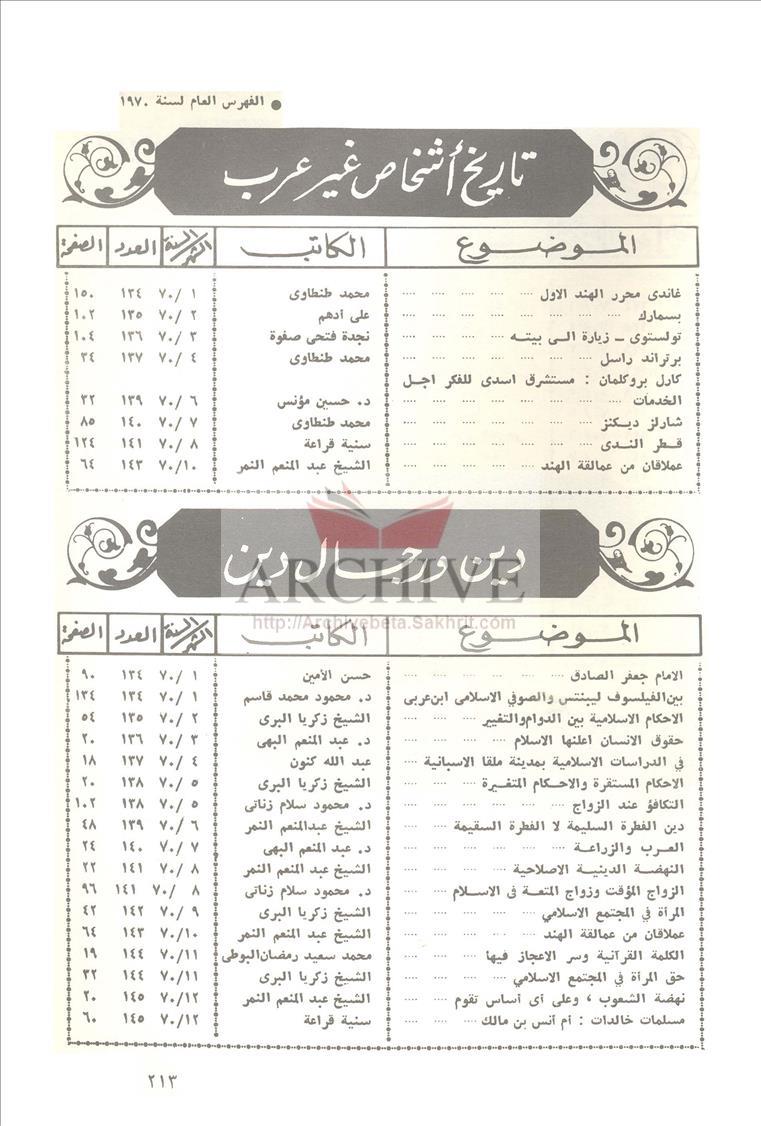 ● الفهرس العام لسنة ١٩٧٠
تاريخ أشخاص غير عرب
الموضوع الكاتب الشهر/السنة العدد الصفحة
غاندى محرر الهند الاول .... .... .... .... .... محمد طنطاوى ١ /٧٠ ١٣٤ ١٥٠
بسمارك .... .... .... .... .... .... على أدهم ٢ /٧٠ ١٣٥ ١٠٢
تولستوى ــ زيارة الى بيته .... .... .... .... نجدة فتحى صفوة ٣ /٧٠ ١٣٦ ١٠٤
برتراند راسل .... .... .... .... .... محمد طنطاوى ٤ /٧٠ ١٣٧ ٣٤
كارل بروكلمان : مستشرق اسدى للفكر اجل
الخدمات .... .... .... .... .... د. حسين مؤنس ٦ /٧٠ ١٣٩ ٣٢
شارلز ديكنز .... .... .... .... .... محمد طنطاوى ٧ /٧٠ ١٤٠ ٨٥
قطر الندى .... .... .... .... .... سنية قراعة ٨ /٧٠ ١٤١ ١٢٤
عملاقان من عمالقة الهند .... .... .... .... الشيخ عبد المنعم النمر ١٠/٧٠ ١٤٣ ٦٤
ARCHIVE
http://Archivebeta.Sakhrit.com
دين ورجال دين
الموضوع الكاتب الشهر/السنة العدد الصفحة
الامام جعفر الصادق .... .... .... .... .... حسن الأمين ١ /٧٠ ١٣٤ ٩٠
بين الفيلسوف ليبنتس والصوفي الاسلامى ابن عربى د. محمود محمد قاسم ١ /٧٠ ١٣٤ ١٣٤
الاحكام الاسلامية بين الدوام والتغيير .... .... .... الشيخ زكريا البرى ٢ /٧٠ ١٣٥ ٥٤
حقوق الانسان اعلنها الاسلام .... .... .... .... د. عبد المنعم البهى ٣ /٧٠ ١٣٦ ٢٠
في الدراسات الاسلامية بمدينة ملقا الاسبانية .... .... عبد الله كنون ٤ /٧٠ ١٣٧ ١٨
الاحكام المستقرة والاحكام المتغيرة .... .... .... الشيخ زكريا البرى ٥ /٧٠ ١٣٨ ٢٠
التكافؤ عند الزواج .... .... .... .... .... د. محمود سلام زناتى ٥ /٧٠ ١٣٨ ١٠٢
دين الفطرة السليمة لا الفطرة السقيمة .... .... .... الشيخ عبدالمنعم النمر ٦ /٧٠ ١٣٩ ٤٨
العرب والزراعة .... .... .... .... .... د. عبد المنعم البهى ٧ /٧٠ ١٤٠ ٢٤
النهضة الدينية الاصلاحية .... .... .... .... الشيخ عبد المنعم النمر ٨ /٧٠ ١٤١ ٢٢
الزواج المؤقت وزواج المتعة فى الاسلام .... .... .... د. محمود سلام زناتى ٨ /٧٠ ١٤١ ٩٦
المرأة في المجتمع الاسلامي .... .... .... .... الشيخ زكريا البرى ٩ /٧٠ ١٤٢ ٤٢
عملاقان من عمالقة الهند .... .... .... .... الشيخ عبد المنعم النمر ١٠/٧٠ ١٤٣ ٦٤
الكلمة القرآنية وسر الاعجاز فيها .... .... .... محمد سعيد رمضان البوطى ١١/٧٠ ١٤٤ ١٩
حق المرأة في المجتمع الاسلامي .... .... .... .... الشيخ زكريا البرى ١١/٧٠ ١٤٤ ٣٢
نهضة الشعوب ، وعلى أى أساس تقوم .... .... .... الشيخ عبد المنعم النمر ١٢/٧٠ ١٤٥ ٢٠
مسلمات خالدات : أم أنس بن مالك .... .... .... سنية قراعة ١٢/٧٠ ١٤٥ ٦٠
٢١٣